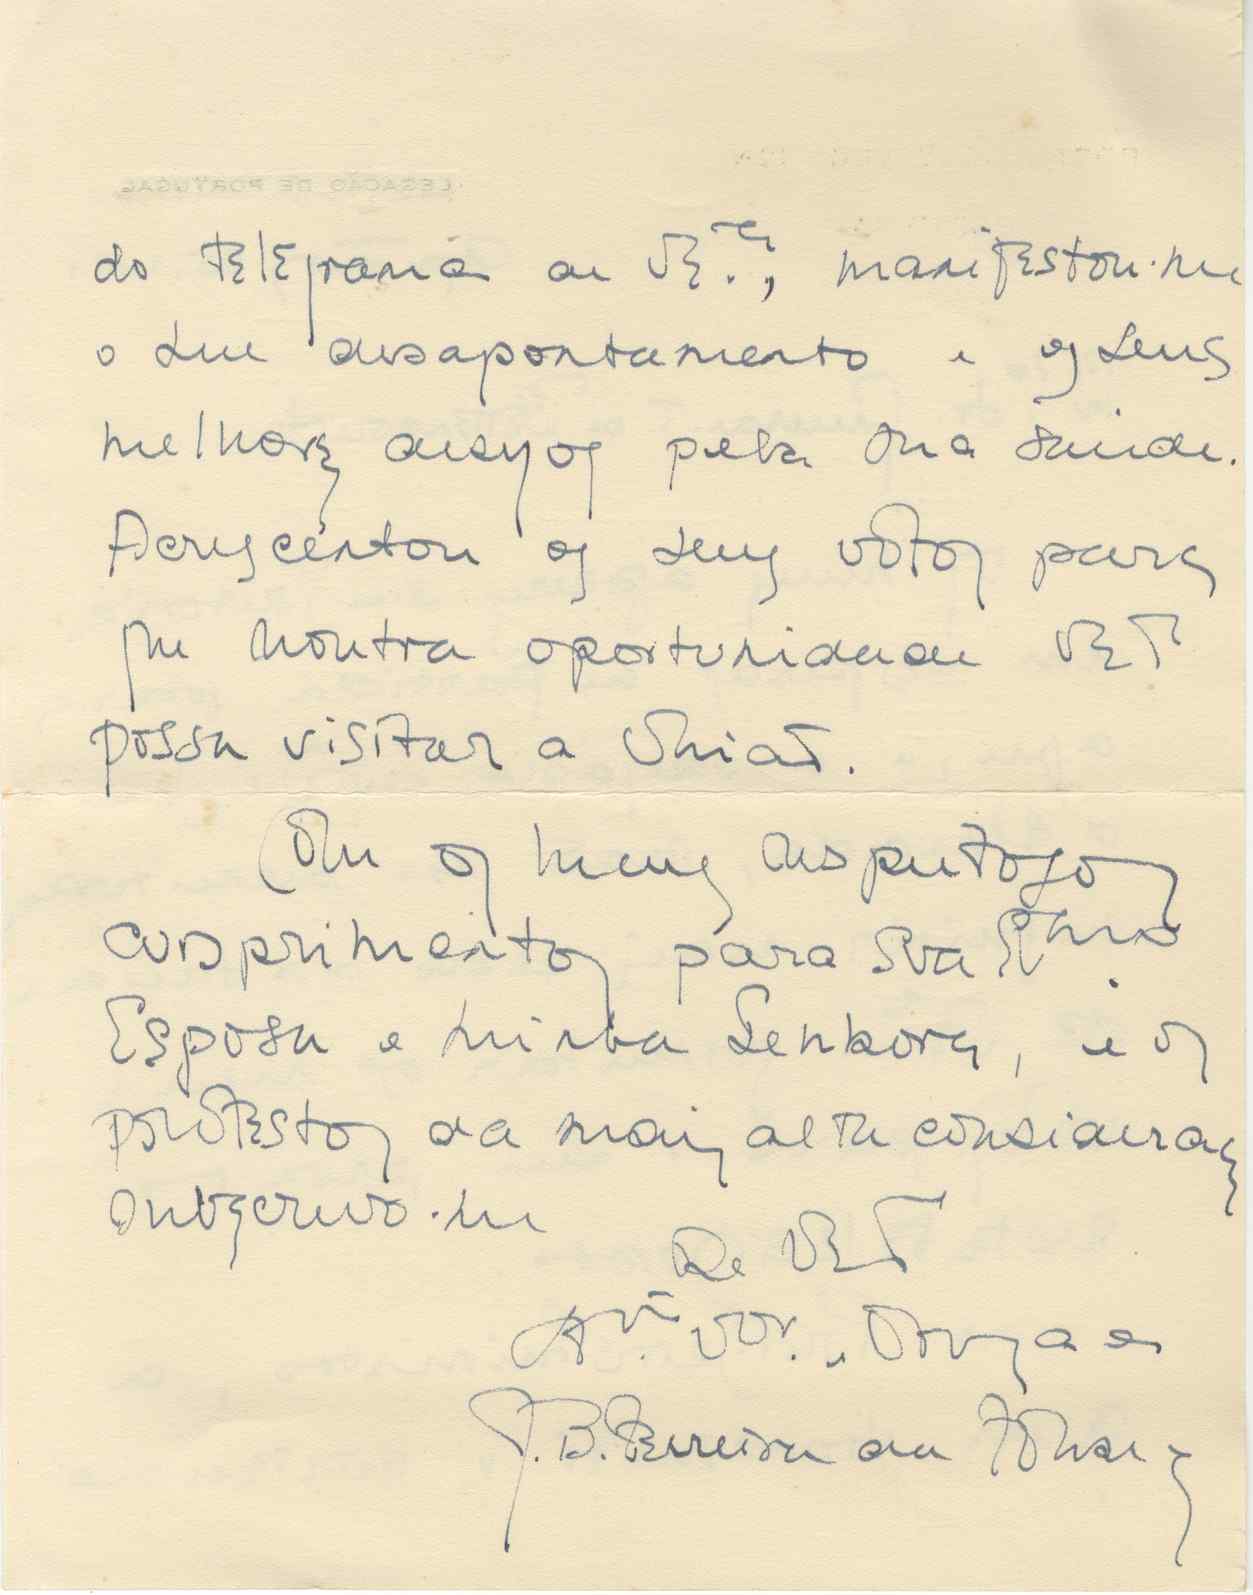 LEGAÇÃO DE PORTUGAL
do telegrama de V.E.cia, manifestou-me
o seu desapontamento e os seus
melhores desejos pela sua saúde.
Acrescentou os seus votos para
que noutra oportunidade V.E.
possa visitar a
Com os meus respeitosos
cumprimentos para Sua Exma.
Esposa e minha Senhora, e os
protestos da mais alta consideração
subscrevo-me
De V.E.
At. Vor. e Obrigado
J. B. Ferreira da Fonseca